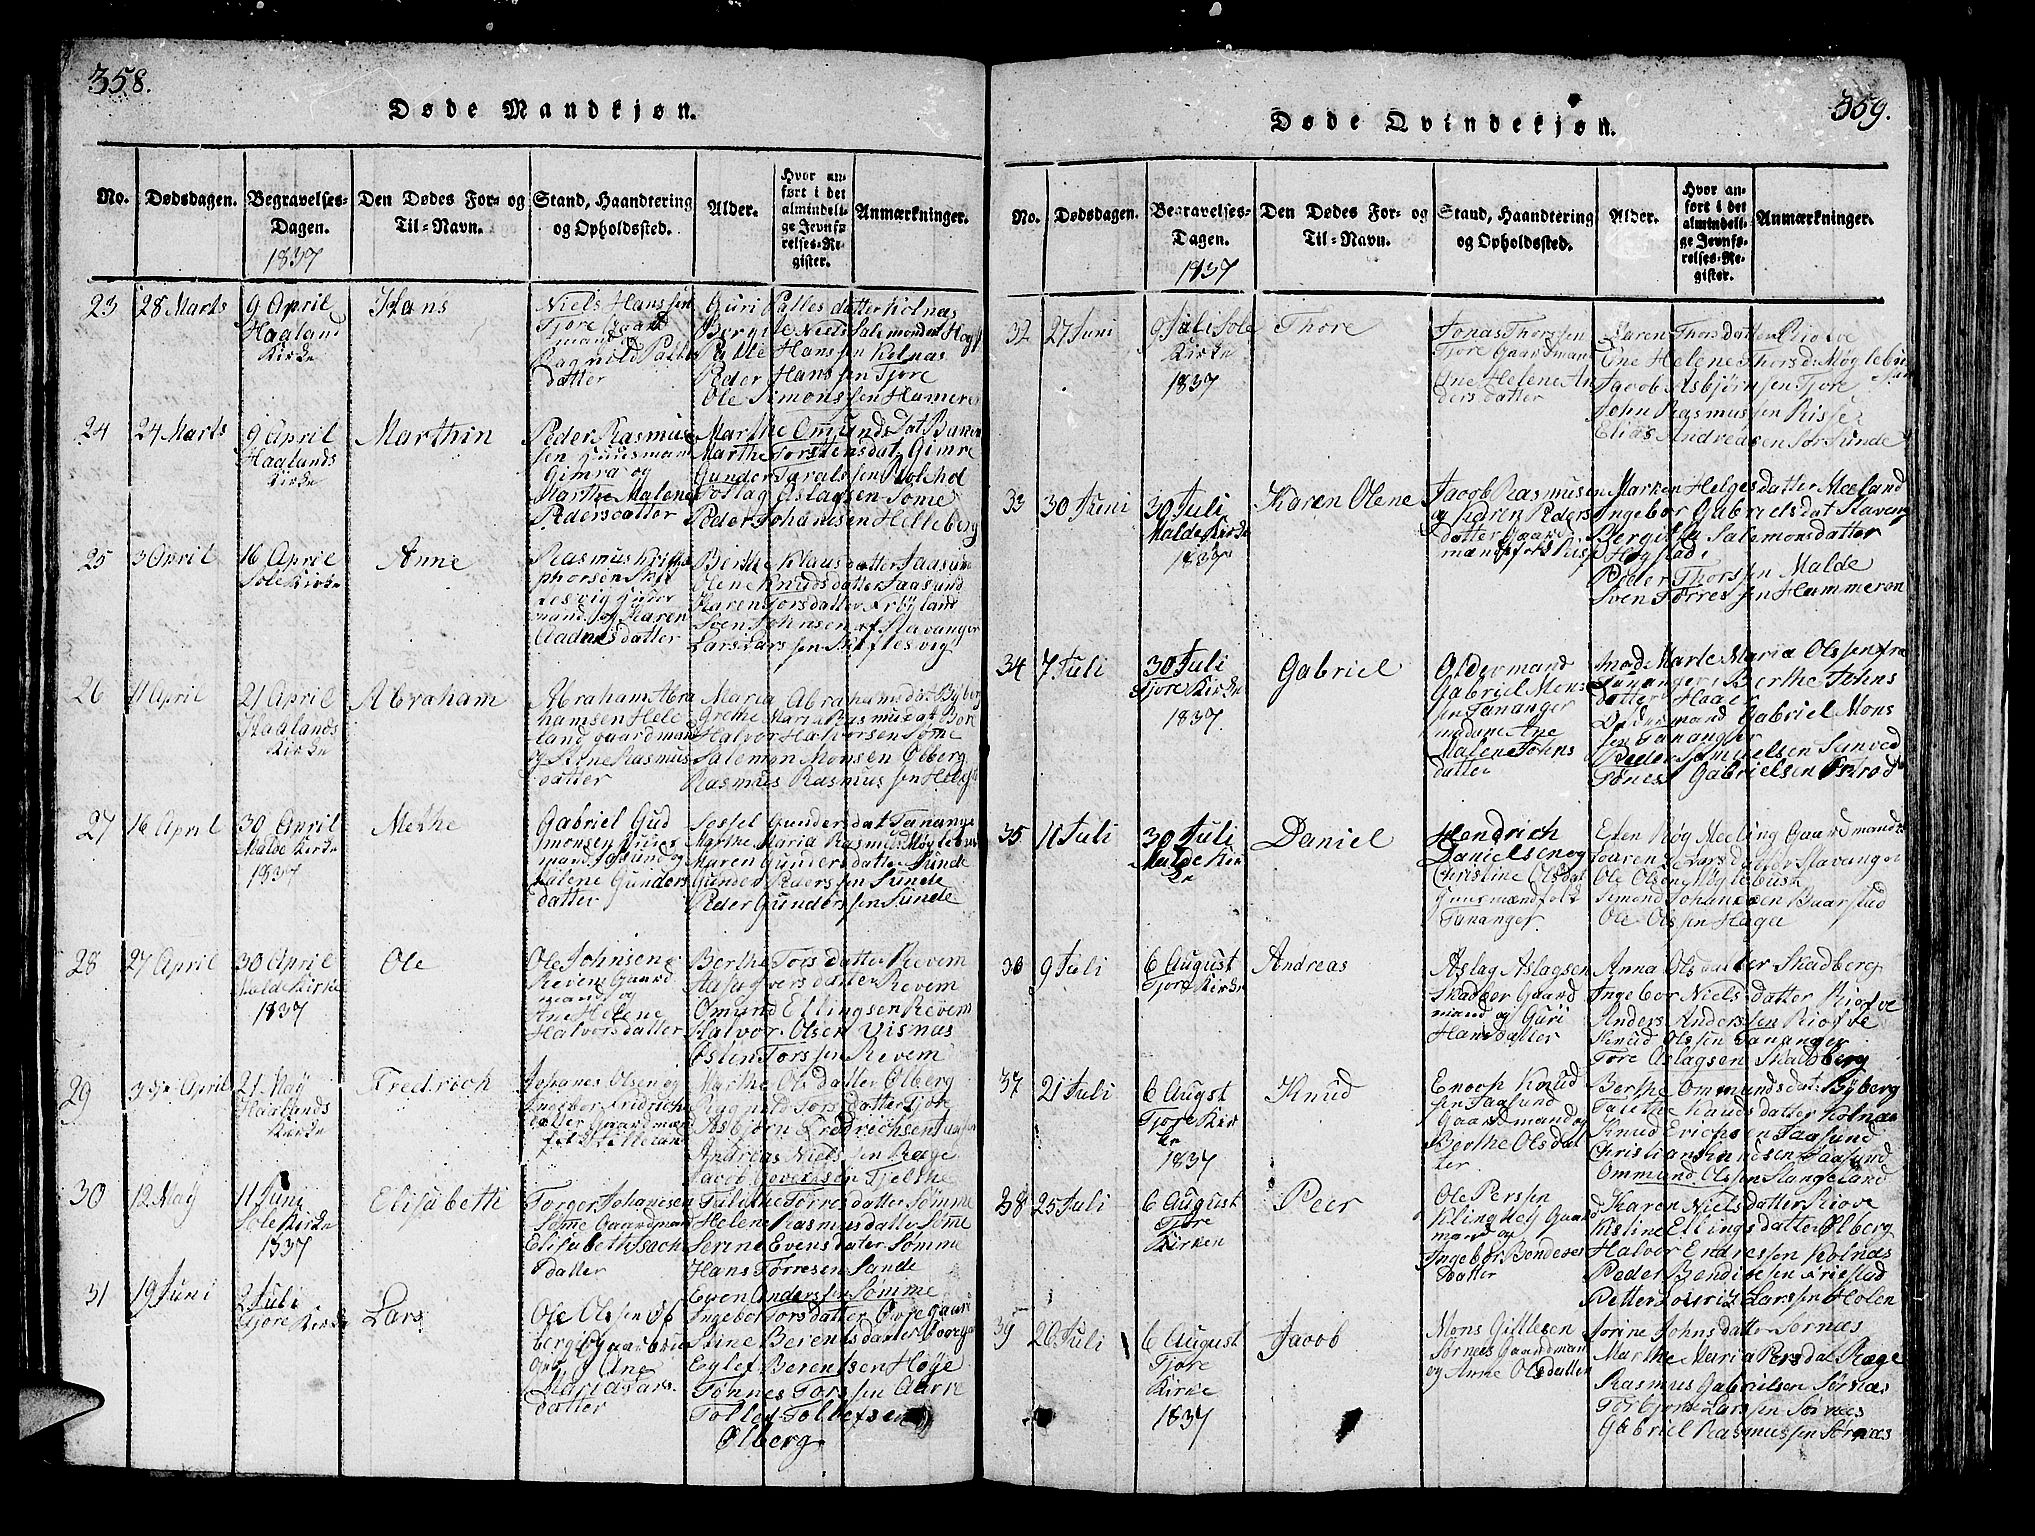 358.
Døde Mandkjøn.
No.
Dødsdagen.
Begravelses-
Dagen.
1837
Den Dødes For- og
Til-Navn.
Stand, Haandtering
og Opholdssted.
Alder.
Hvor an-
ført i det
almindeli-
ge Jevnfø-
relses-Re-
gister.
Anmærkninger.
23
28 Marts
9 April
Haaland
Kirke
Hans
Niels Hanssen
Tjore Gaard
mand og
Ragnild Palles
datter
Guri Palles datter Kolnæs
Palle Hanssen Kolnas
Peder Hanssen Tjore
Ole Simonssen Hamere
24
24 Marts
9 April
Haalands
Kirke
Marthin
Peder Rasmus
sen Huusmand
Gimra og
Marthe Malene
Pedersdatter
Marthe Omunds Dat
Marthe Torstensdat Gimre
Gunder Taralssen
Aslagsen Søme
Peder Johannsen Helleberg
25
3 April
16 April
Sole Kirke
Anne
Rasmus Kristo
phorsen
mand og Karen
Aadnesdatter
Berthe Klausdatter Jaasund
Olene Knudsdatter Jaasund
Karen Torsdatter Frøyland
Sven Johnsen af Stavanger
Lars Larssen Skiftesvig
26
11 April
21 April
Haalands
Kirke
Abraham
Abraham Abra
hamsen Hele
land gaardmand
og Stine Rasmus
datter
Maria Abrahamsdat Byberg
Grethe Maria Rasmusdat
Halvor Halvorsen Sømе
Salemon Monsen Ølberg
Rasmus Rasmussen
27
16 April
30 April
Malde Kirke
1837
Methe
Gabriel Gud
monsen Huus
mand Jasund og
Malene Gunders
datter
Sessel Gundersdat Tanange
Marthe Maria Rasmusd Møglebust
Maren Gundersdatter Sunde
Gunder Pederssen Sunde
Peder Gunderssen Sunde
28
27 April
30 April
Malde Kirke
1837
Ole
Ole Johnsen
Revem Gaard
mand og
Ane Helene
Halvorsdatter
Berthe Torsdatter Revem
Aasa Iversdatter Revem
Omund Ellingsen Revem
Halvor Olsen Visnæs
Østen Torssen Revem
29
3 April
21 May
Haalands
Kirke
Fredrich
Johanes Olsen og
Ingebor Fridrich
datter Gaardmæ
Marthe Olsdatter Ølberg
Ragnild Torsdatter Tjore
Asbjørn Fredrichsen
Andreas Nielssen Ræge
Jacob Govertsen Tjelthe
30
12 May
11 Juni
Sole Kirke
1837
Elisabeth
Torger Johanesen
Sømе Gaardmand
Elisabeth Isach
datter
Talethe Torresdatter Sømme
Helene Rasmusdatter Sømе
Serine Evensdater Sømme
Hans Torresen Sande
Even Anderssen Sømme
31
19 Juni
2 Juli
Tjore Kirke
Lars
Ole Olssen Øl
berg
og Ane
Maria Lars
datter
Ingebor Torsdatter
Stine Berentsdatter
Eglef Berentsen Høie
Tønnes Torssen Aarre
Tollef Tollefsen
Ølberg
359.
Døde Qvindekjøn.
No.
Dødsdagen.
Begravelses-
Dagen.
1837
Den Dødes For- og
Til-Navn.
Stand, Haandtering
og Opholdssted.
Alder.
Hvor an-
ført i det
almindeli-
ge Jevnfø-
relses-Re-
gister.
Anmærkninger.
32
27 Juni
9 Juli Sole
Kirke
1837
Thore
Jonas Thorssen
Tjore Gaardman
Ane Helene An
dersdatter
Karen Thorsdatter Riotve
Ane Helene Thorsd Møglebu
Jacob Asbjørnsen Tjore
John Rasmussen Risse
Elias Andreasen Sør Sunde
33
30 Juni
30 Juli
Malde Kirke
1837
Karen Olene
Jacob Rasmusen
og Karen Peders
datter Gaard
mandsfolk Risse
Marken Helgesdatter Meeland
Ingebor Gabrielsdat Stavang
Bergitha Salemonsdatter
Hogstad
Peder Thorssen Malde
Sven Torressen Hammeren
34
7 Juli
30 Juli
Tjore Kirke
1837
Gabriel
Oldermand
Gabriel Mons
sen Tananger
madame Ane
Malene Johns
datter
Made Marte Maria Olssen fra
Tananger, Berthe Johns
datter Haaer
Oldermand Gabriel Mons
sen Tananger
Peder Samuelsen
Tønes Gabrielsen
35
11 Juli
30 Juli
Malde Kir
ke
Daniel
Hendrich
Danielsen og
Christine Olsdat
Huusmændfolk
Tananger
Eden Røg Meeling Gaardmand
Karen Larsdatter Stavanger
Ole Olsen Møglebust
Simond Johannesen Baarstad
Ole Olssen Haga
36
9 Juli
6 August
Tjore Kirke
Andreas
Aslag Aslagsen
Skadber Gaard
mand og Guri
Hansdatter
Anna Olsdatter Skadberg
Ingebor Nielsdatter Riotve
Anders Anderssen Riotve
Knud Olssen Tananger
Tore Aslagsen Skadberg
37
21 Juli
6 Augst
Tjore Kir
ke
1837
Knud
Enoch Knud
sen Jaasund
Gaardmand og
Berthe Olsdat
ter
Berthe Ommundsdat Byberg
Talethe Knudsdatter Kolnæs
Knud Erichsen Jaasund
Christian Knudsen Jaasund
Ommund Olssen Stangeland
38
25 Juli
6 August
Tjore
Kirken
Peer
Ole Perssen
Klinghelj Gaar
mand og
Ingebor Bendixes
datter
Karen Nielsdatter Riotve
Kistine Ellingsdatter Ølberg
Halvor Endressen Kolnæs
Peder Bendixsen Friestad
Petter Louritz Larssen Holen
39
20 Juli
6 August
Tjore
Kirke
1837
Jacob
Mons Gittlesen
Sørnes Gaardman
og Anne Olsdatter
Jorine Johnsdatter Sørnæs
Marthe Maria Persdat Ræge
Rasmus Gabrielsen Sørnæs
Torbjørn Larssen Sørnæs
Gabriel Rasmussen Sørnæs